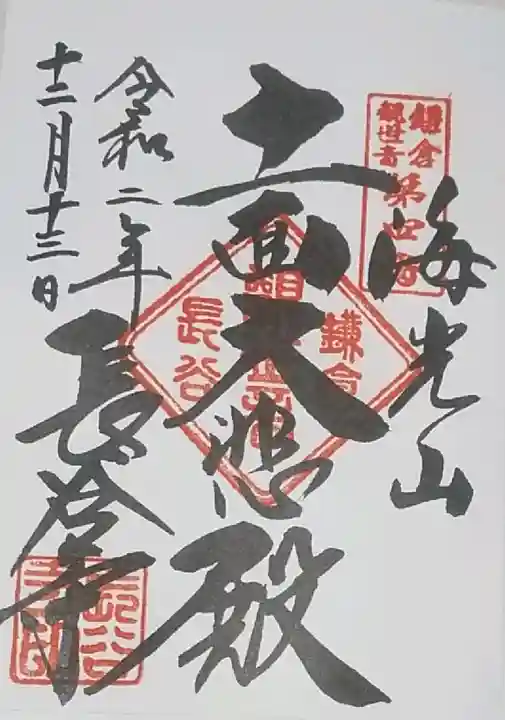 鎌倉
観世音
第四番
海光山
鎌倉
十一面大悲殿
長谷
令和二年
十二月十三日
長谷寺